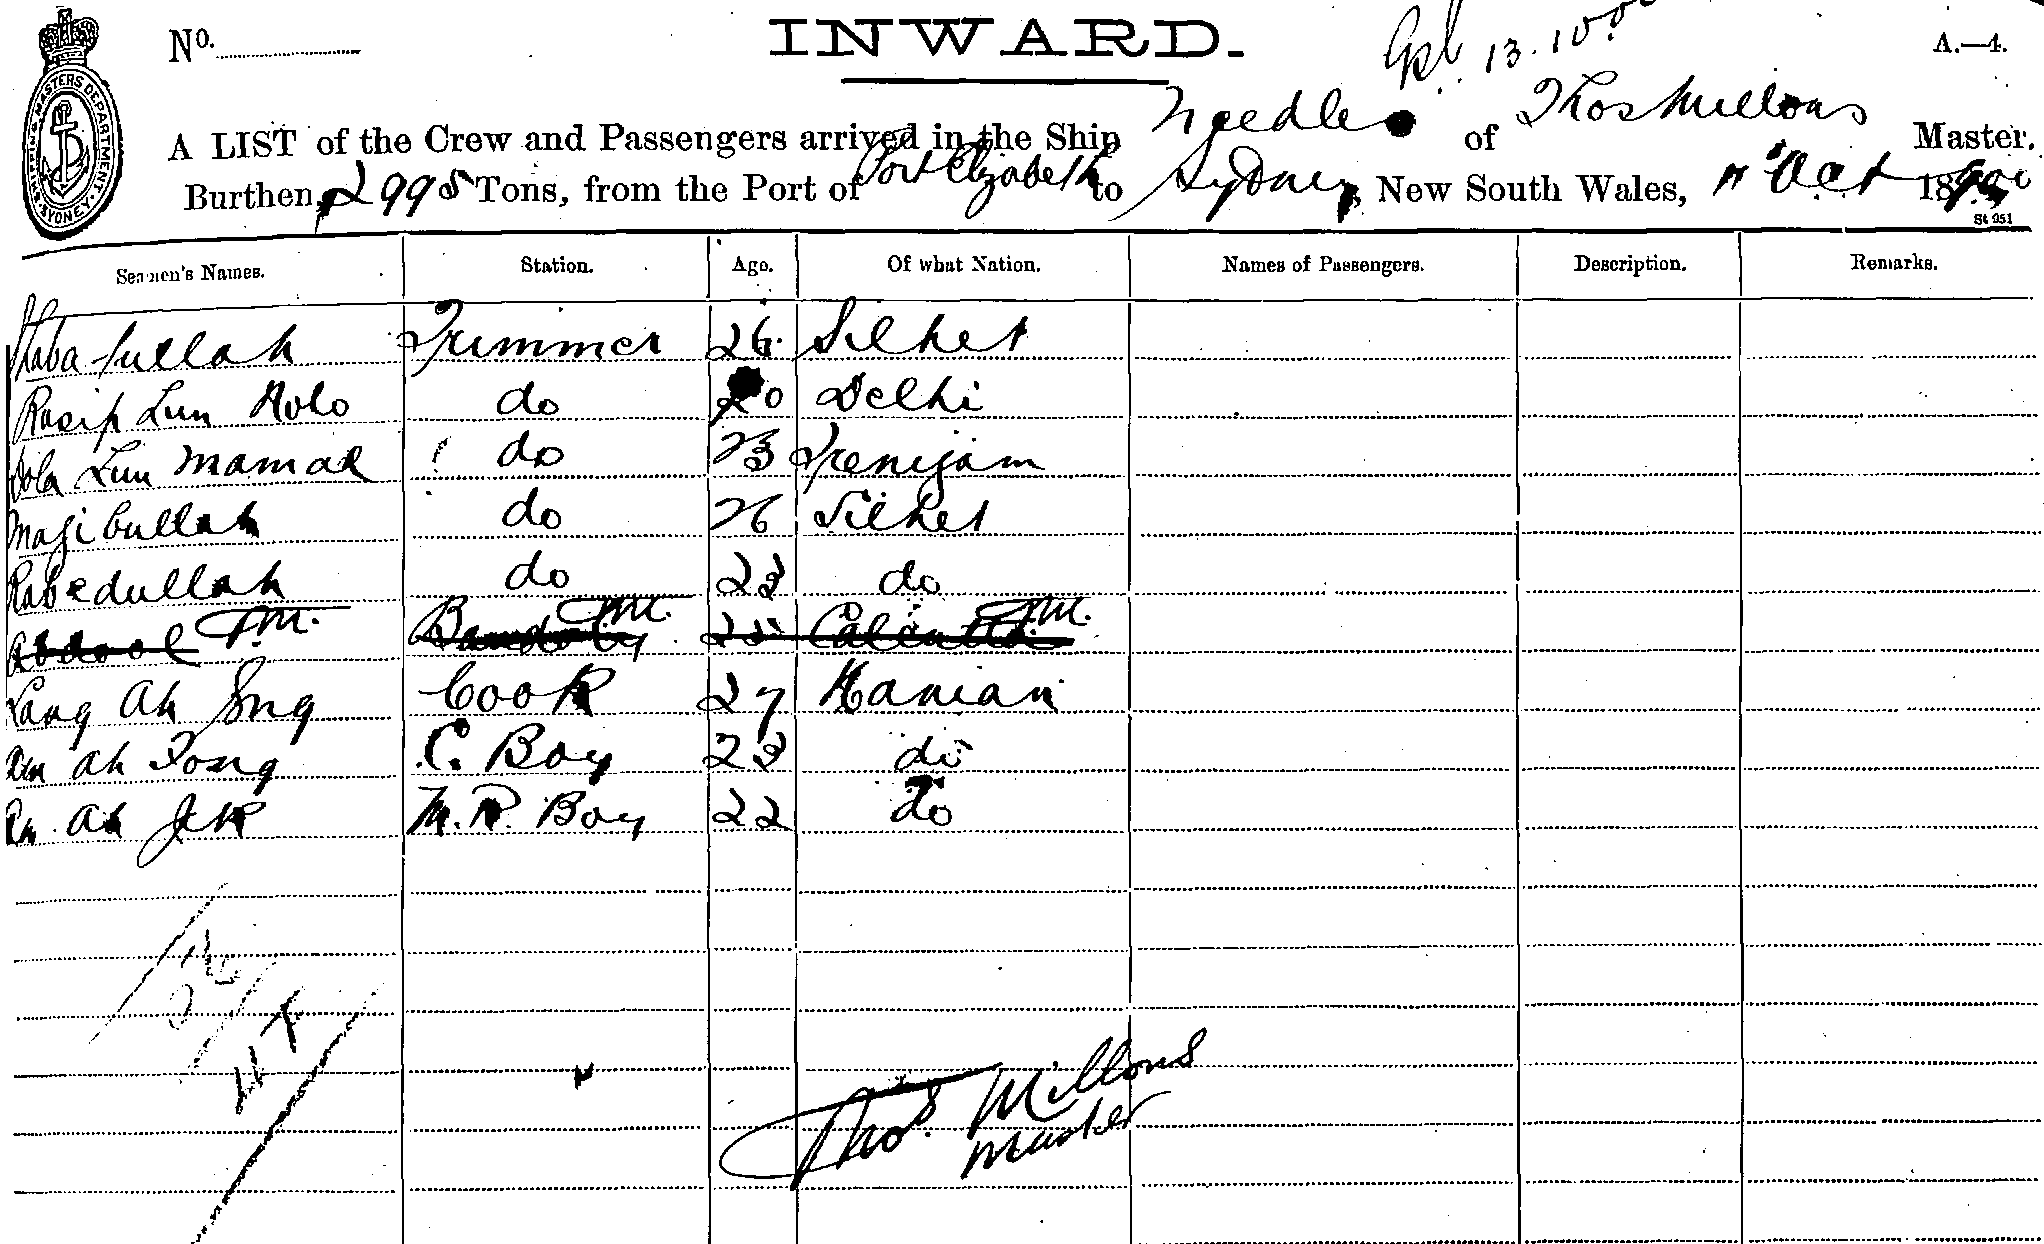 No.
INWARD.
13.10.00
A.—4.
SHIPPING MASTERS DEPARTMENT
SYDNEY
A LIST of the Crew and Passengers arrived in the Ship Needles of Thos Millons Master.
Burthen, 2998 Tons, from the Port of Port Elizabeth to Sydney, New South Wales, 11th Oct 1900
St 951
Seamen's Names. Station. Age. Of what Nation. Names of Passengers. Description. Remarks.
Trimmer 26 Silhet
Rasip Lun do 20 Delhi
Lun Mamad do 23
Magibullah do 26 Silhet
Rabedullah do 23 do
Abdool T.M. T.M. 25 Calcutta T.M.
Lang Ah Song Cook 27 Hanian
Ah Tong C. Boy 23 do
Ah Jek M.R. Boy 22 do
Thos. Millons
Master